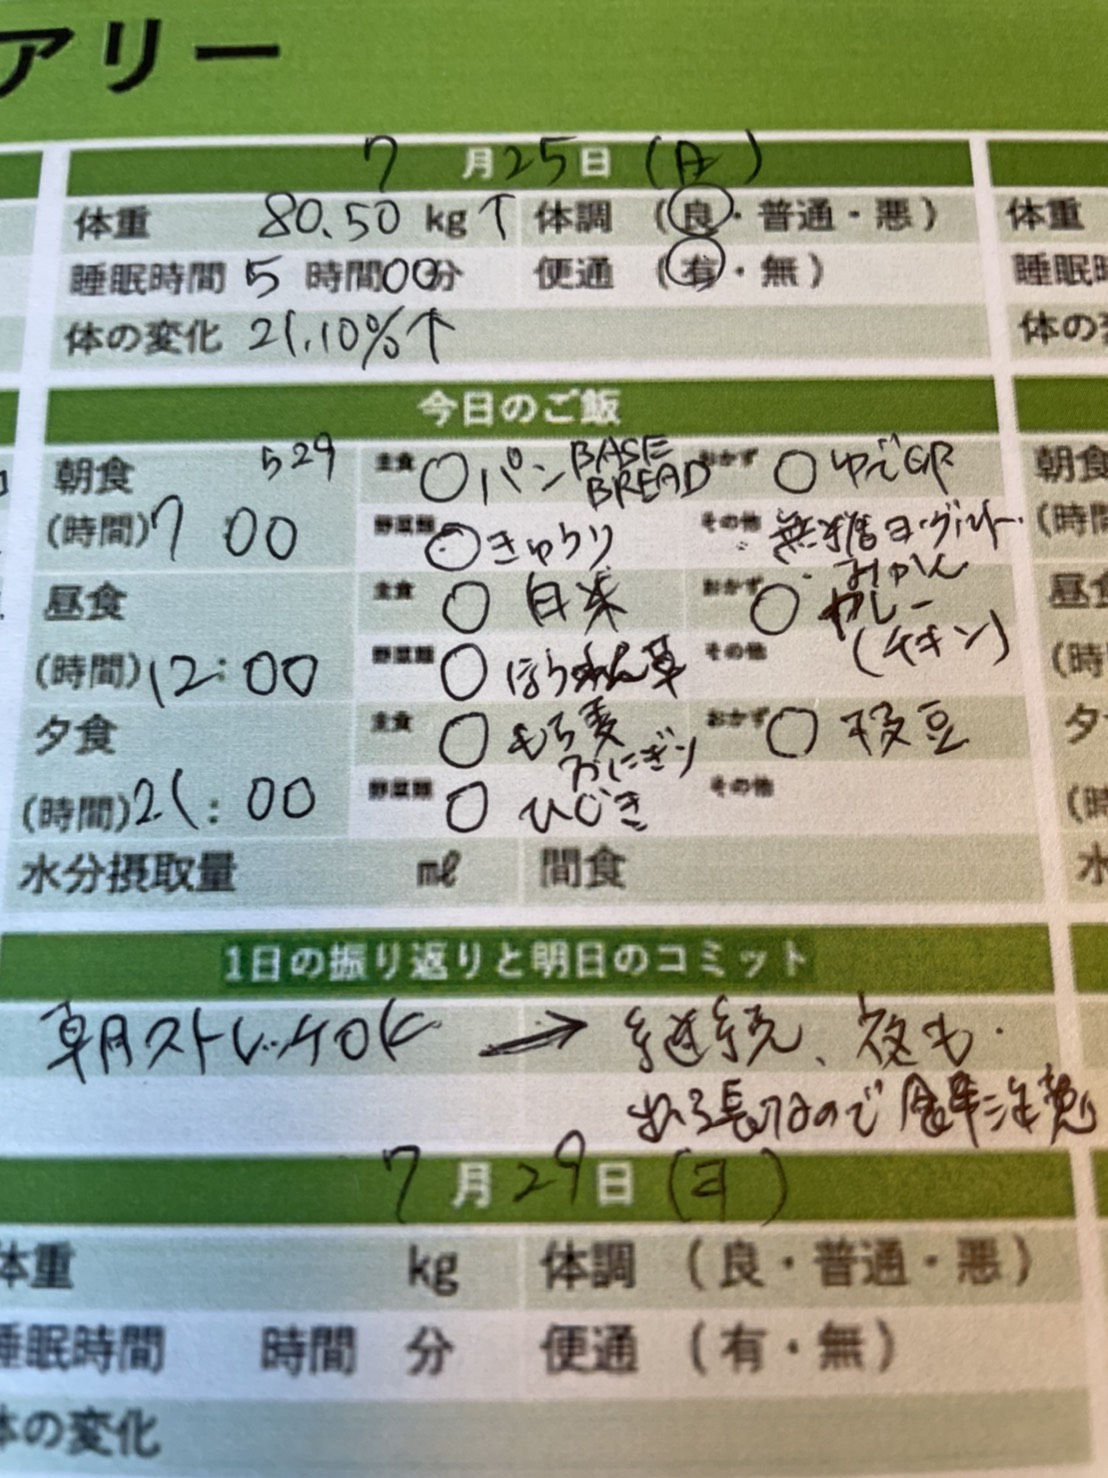 アリー
7月25日(
体重 80.50 kg↑ 体調 (良・普通・悪) 体重
睡眠時間 5 時間00分 便通 (有・無) 睡眠時
体の変化 21.10%↑ 体の
今日のご飯
朝食 529 主食 ○パン BASE BREAD おかず ○ゆで 朝食
(時間)7 00 野菜類 ○きゅうり その他 無糖ヨーグルト・みかん (時間
昼食 主食 ○白米 おかず ○カレー(チキン) 昼食
(時間)12:00 野菜類 ○ほうれん草 その他 (時
夕食 主食 ○もち麦おにぎり おかず ○枝豆 夕
(時間)21:00 野菜類 ○ひじき その他 (時
水分摂取量 ml 間食 水
1日の振り返りと明日のコミット
朝ストレッチOK → 継続、夜も.
7月29日(
体重 kg 体調 (良・普通・悪)
睡眠時間 時間 分 便通 (有・無)
体の変化